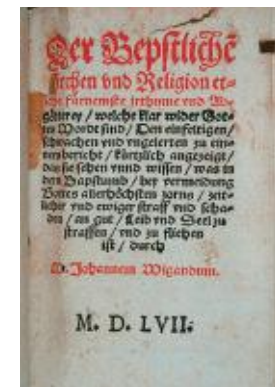 Der Bepstliche
kirchen vnd Religion et-
liche fürnemste jrthume vnd
welche klar wider Got-
tes Wordt sind / Den einfeltigen /
schwachen vnd vngelerten zu ei-
bericht / kürtzlich angezeigt /
das sie sehen vnnd wissen / was in
dem Bapstumb / bey vermeidung
Gottes allerhöchsten zorns / zeit-
licher vnd ewiger straff vnd scha-
den / an gut / Leib vnd Seel zu
straffen / vnd zu fliehen
ist / durch
M. Johannem Wigandum.
M. D. LVII.